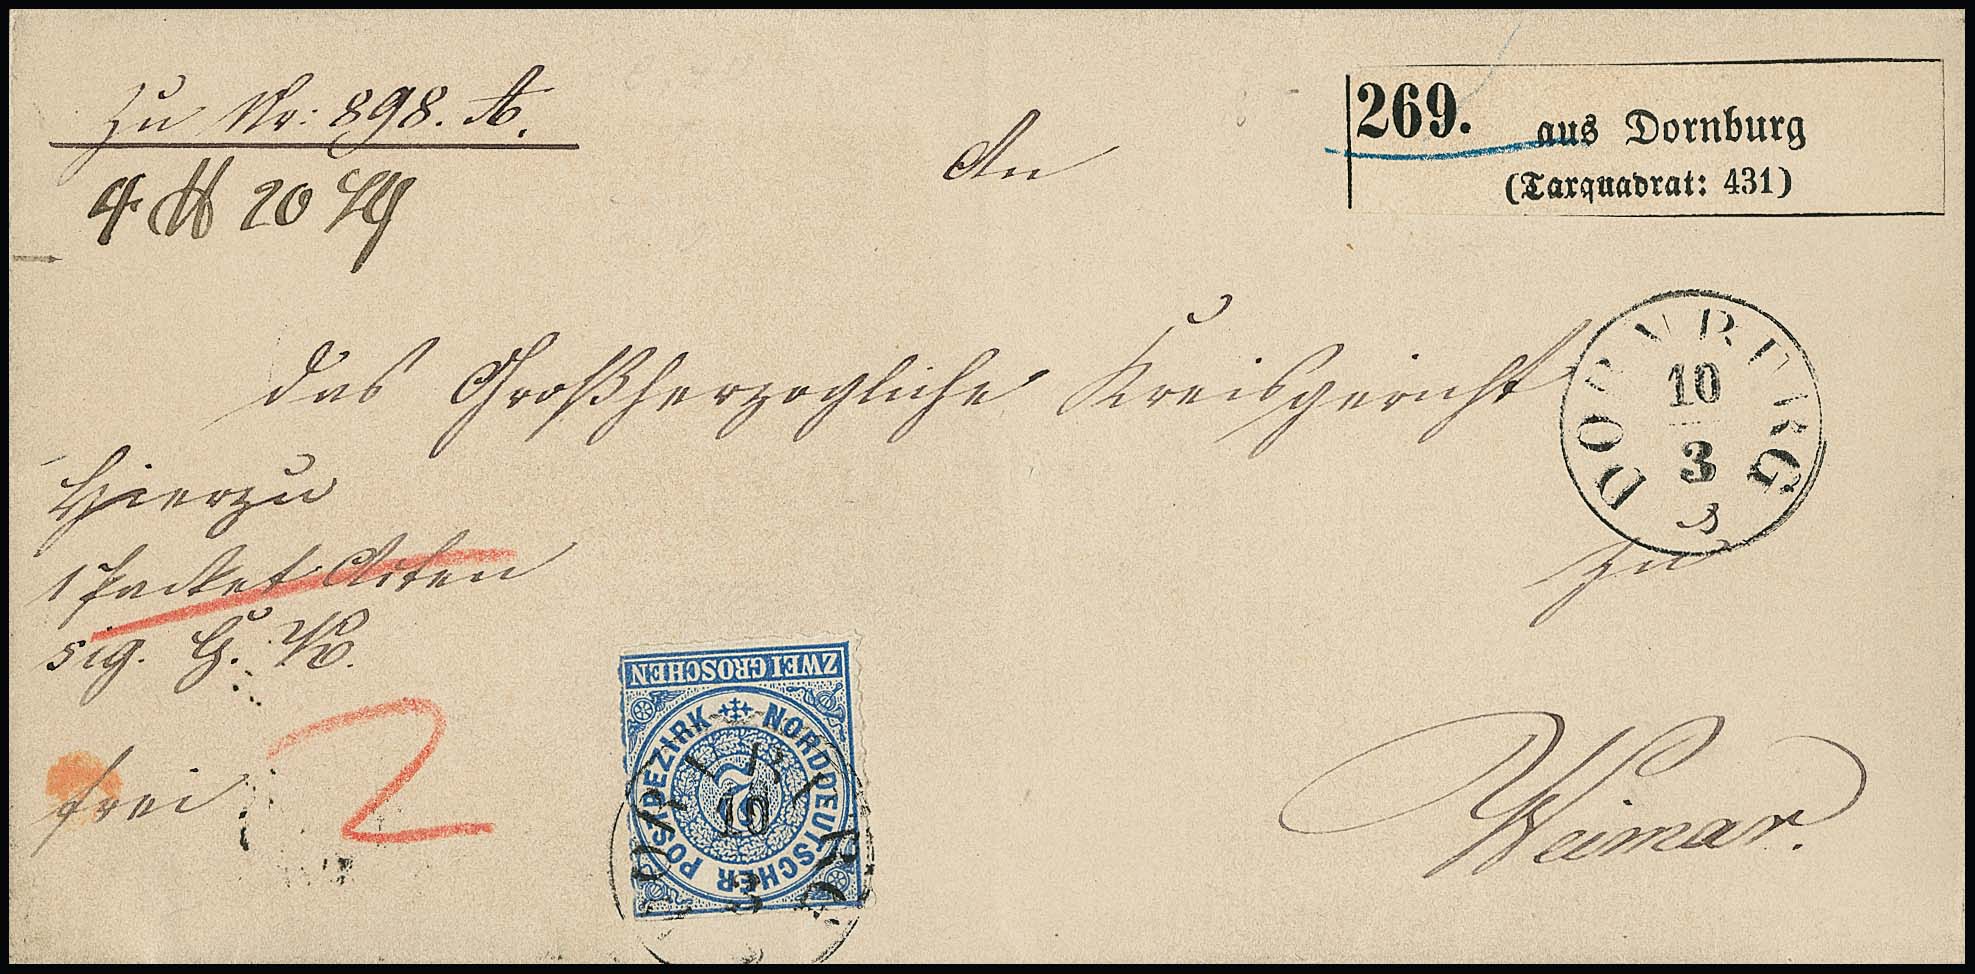 Zu Nr: 898. A.
4 ℔ 20
269. aus Dornburg
(Taxquadrat: 431)
An
das Großherzogliche Kreisgericht
DORNBURG
10
3
Hierzu
1 Packet Acten
sig. G. A.
zu
frei
2
Weimar.
ZWEI GROSCHEN
NORDDEUTSCHER POSTBEZIRK
2
DORNBURG
10
3